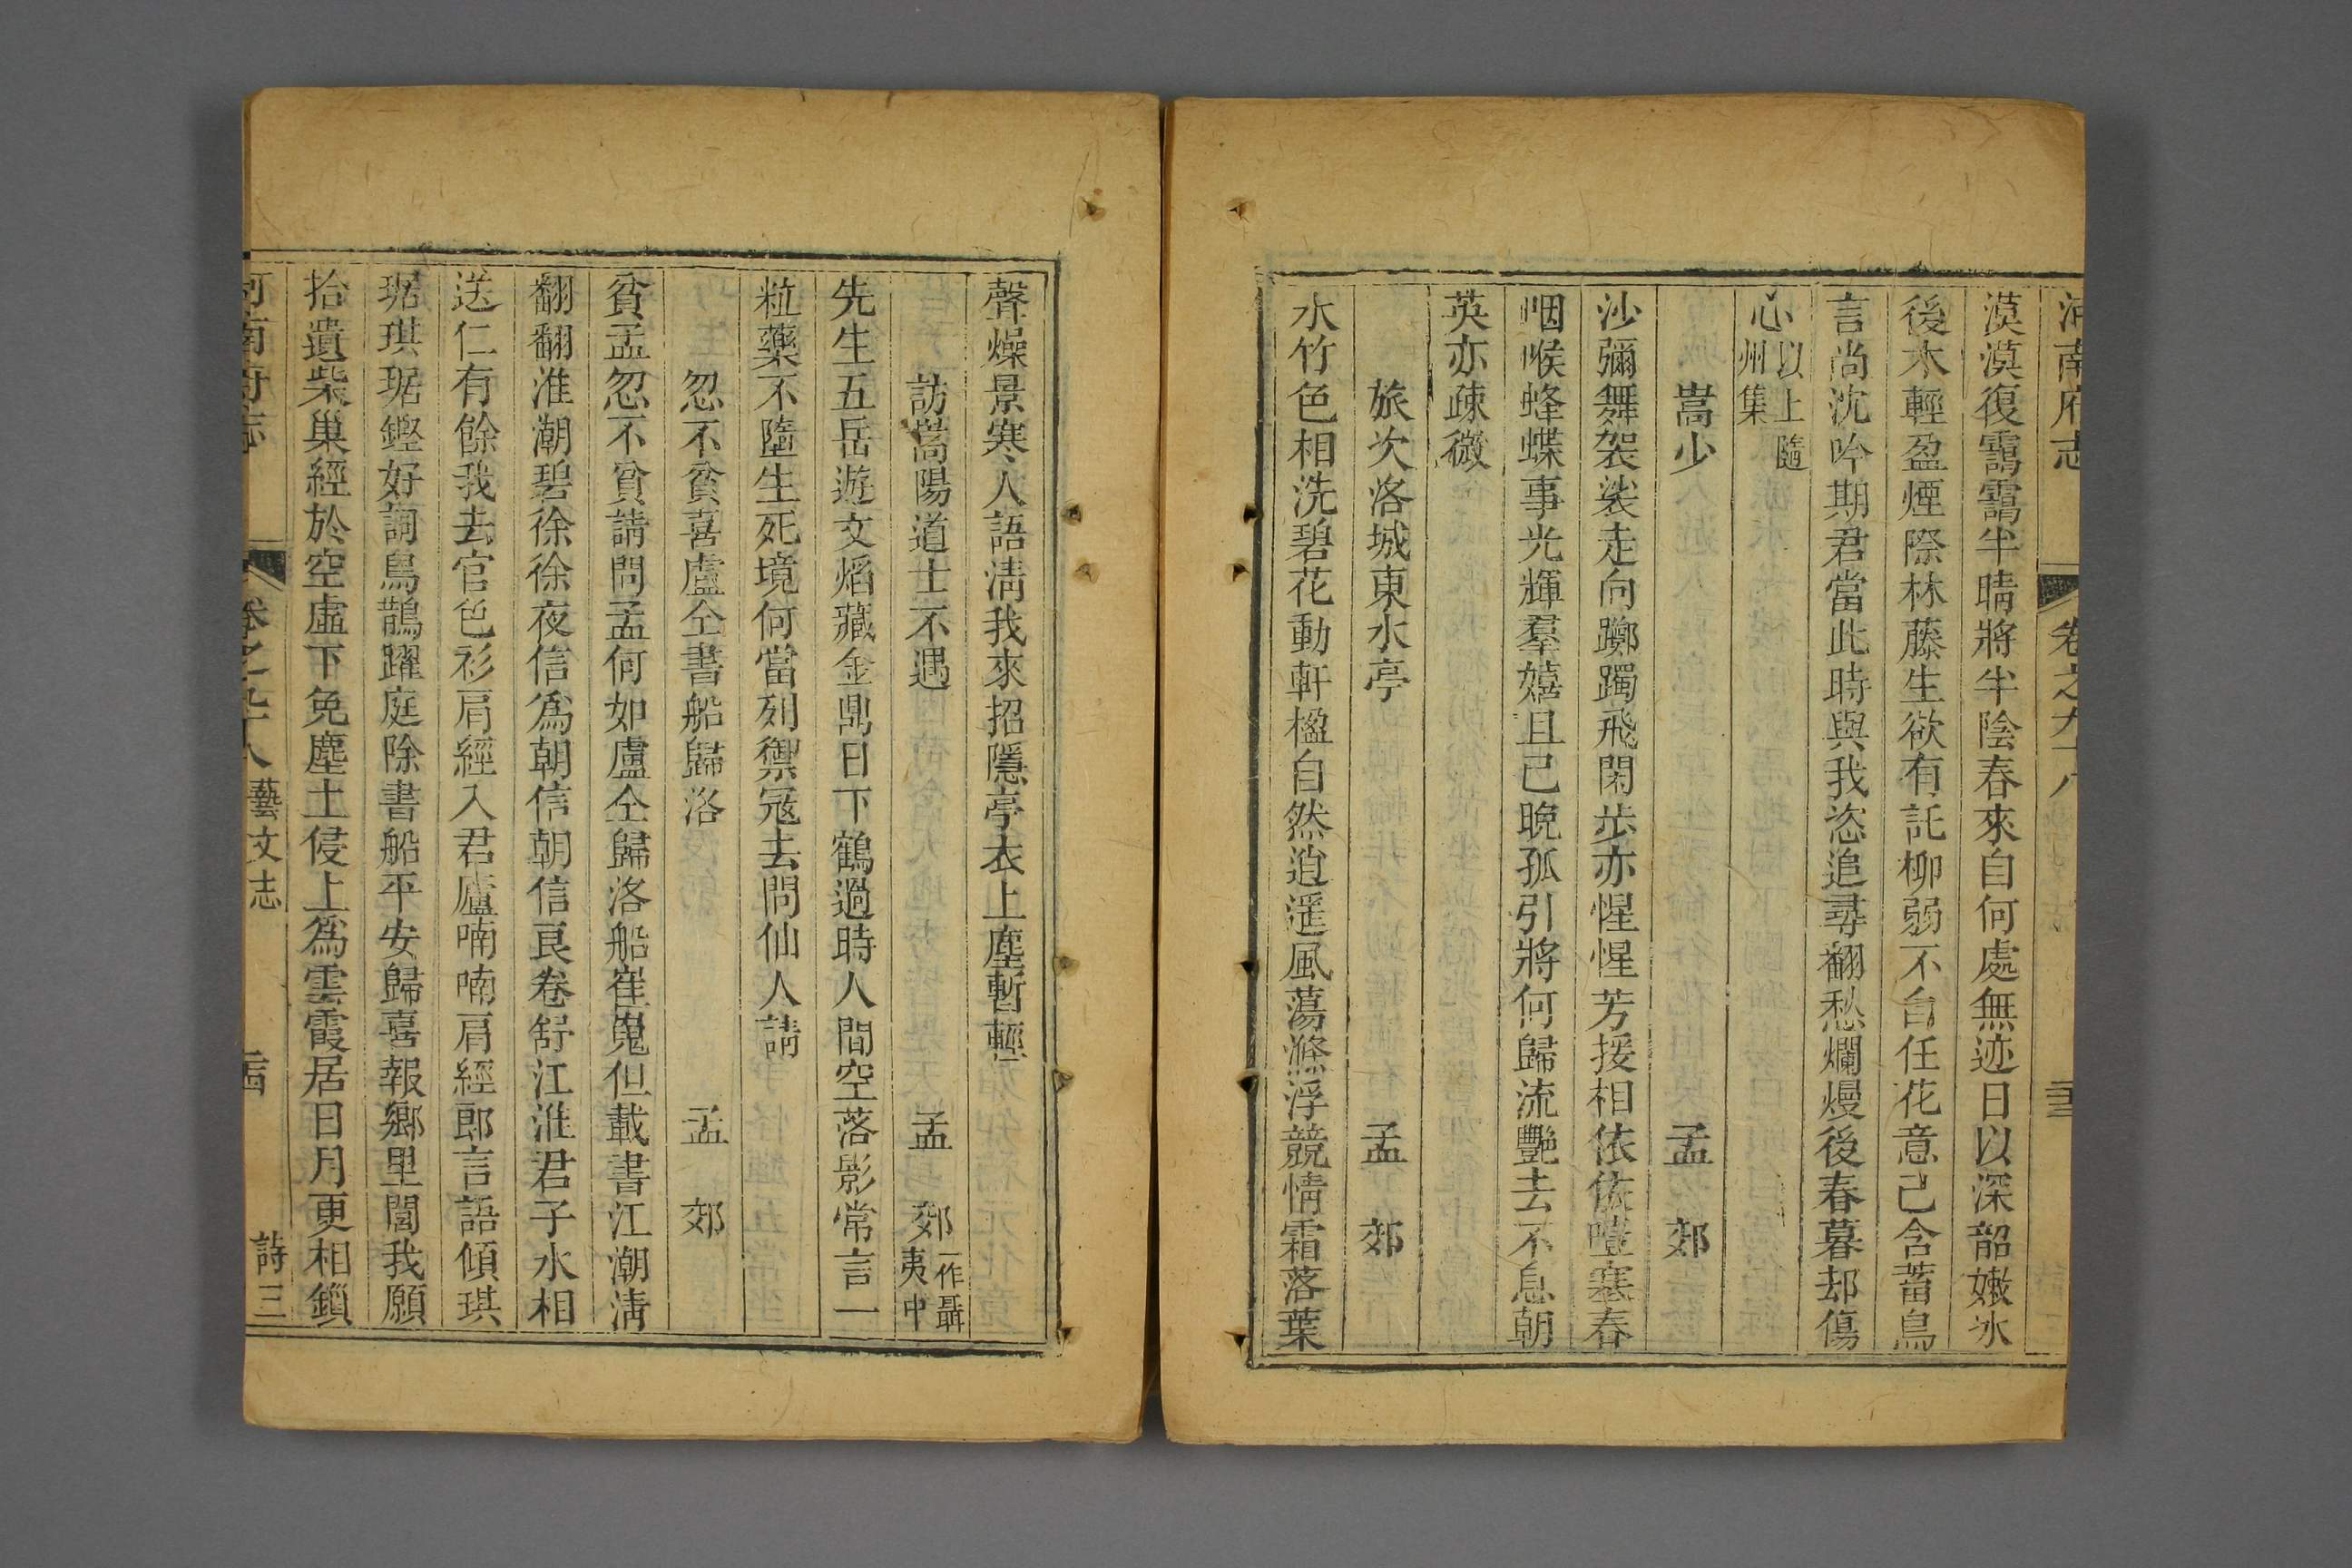 河南府志 卷之九十八
漠漠復靄靄半晴將半陰春來自何處無迹日以深韶嫩冰
後木輕盈煙際林藤生欲有託柳弱不自任花意已含蓄鳥
言尚沈吟期君當此時與我恣追尋翻愁爛熳後春暮却傷
心以上隨州集
嵩少 孟 郊
沙彌舞袈裟走向躑躅飛閑步亦惺惺芳援相依依噎塞春
咽喉蜂蝶事光輝羣嬉且已晚孤引將何歸流艷去不息朝
英亦疎微
旅次洛城東水亭 孟 郊
水竹色相洗碧花動軒楹自然逍遙風蕩滌浮競情霜落葉
聲燥景寒人語淸我來招隱亭衣上塵暫輕
訪嵩陽道士不遇 孟 郊一作聶夷中
先生五岳遊文焰藏金鼎日下鶴過時人間空落影常言一
粒藥不隨生死境何當列禦冦去問仙人請
忽不貧喜盧仝書船歸洛 孟 郊
貧孟忽不貧請問孟何如盧仝歸洛船崔嵬但載書江潮淸
翻翻淮潮碧徐徐夜信爲朝信朝信良卷舒江淮君子水相
送仁有餘我去官色衫肩經入君廬喃喃肩經郎言語傾琪
琚琪琚鏗好詞鳥鵲躍庭除書船平安歸喜報鄉里閭我願
拾遺柴巢經於空虛下免塵土侵上爲雲霞居日月更相鎖
河南府志 卷之九十八 藝文志 詩三